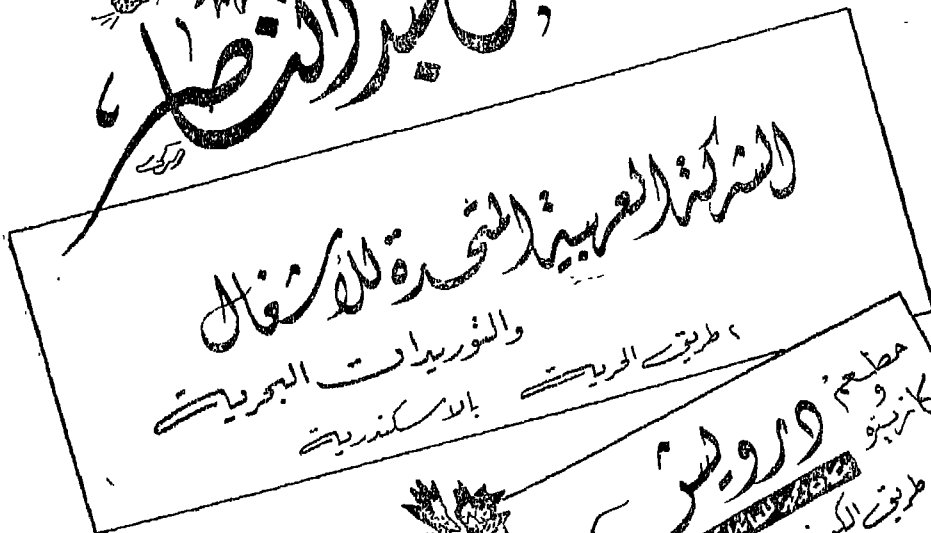 عبد النصار
الشركة العربية المتحدة للأشغال
والتوريدات البحرية
٢ طريق الحرية بالاسكندرية
مطعم
و
كازينو
درويش
طريق